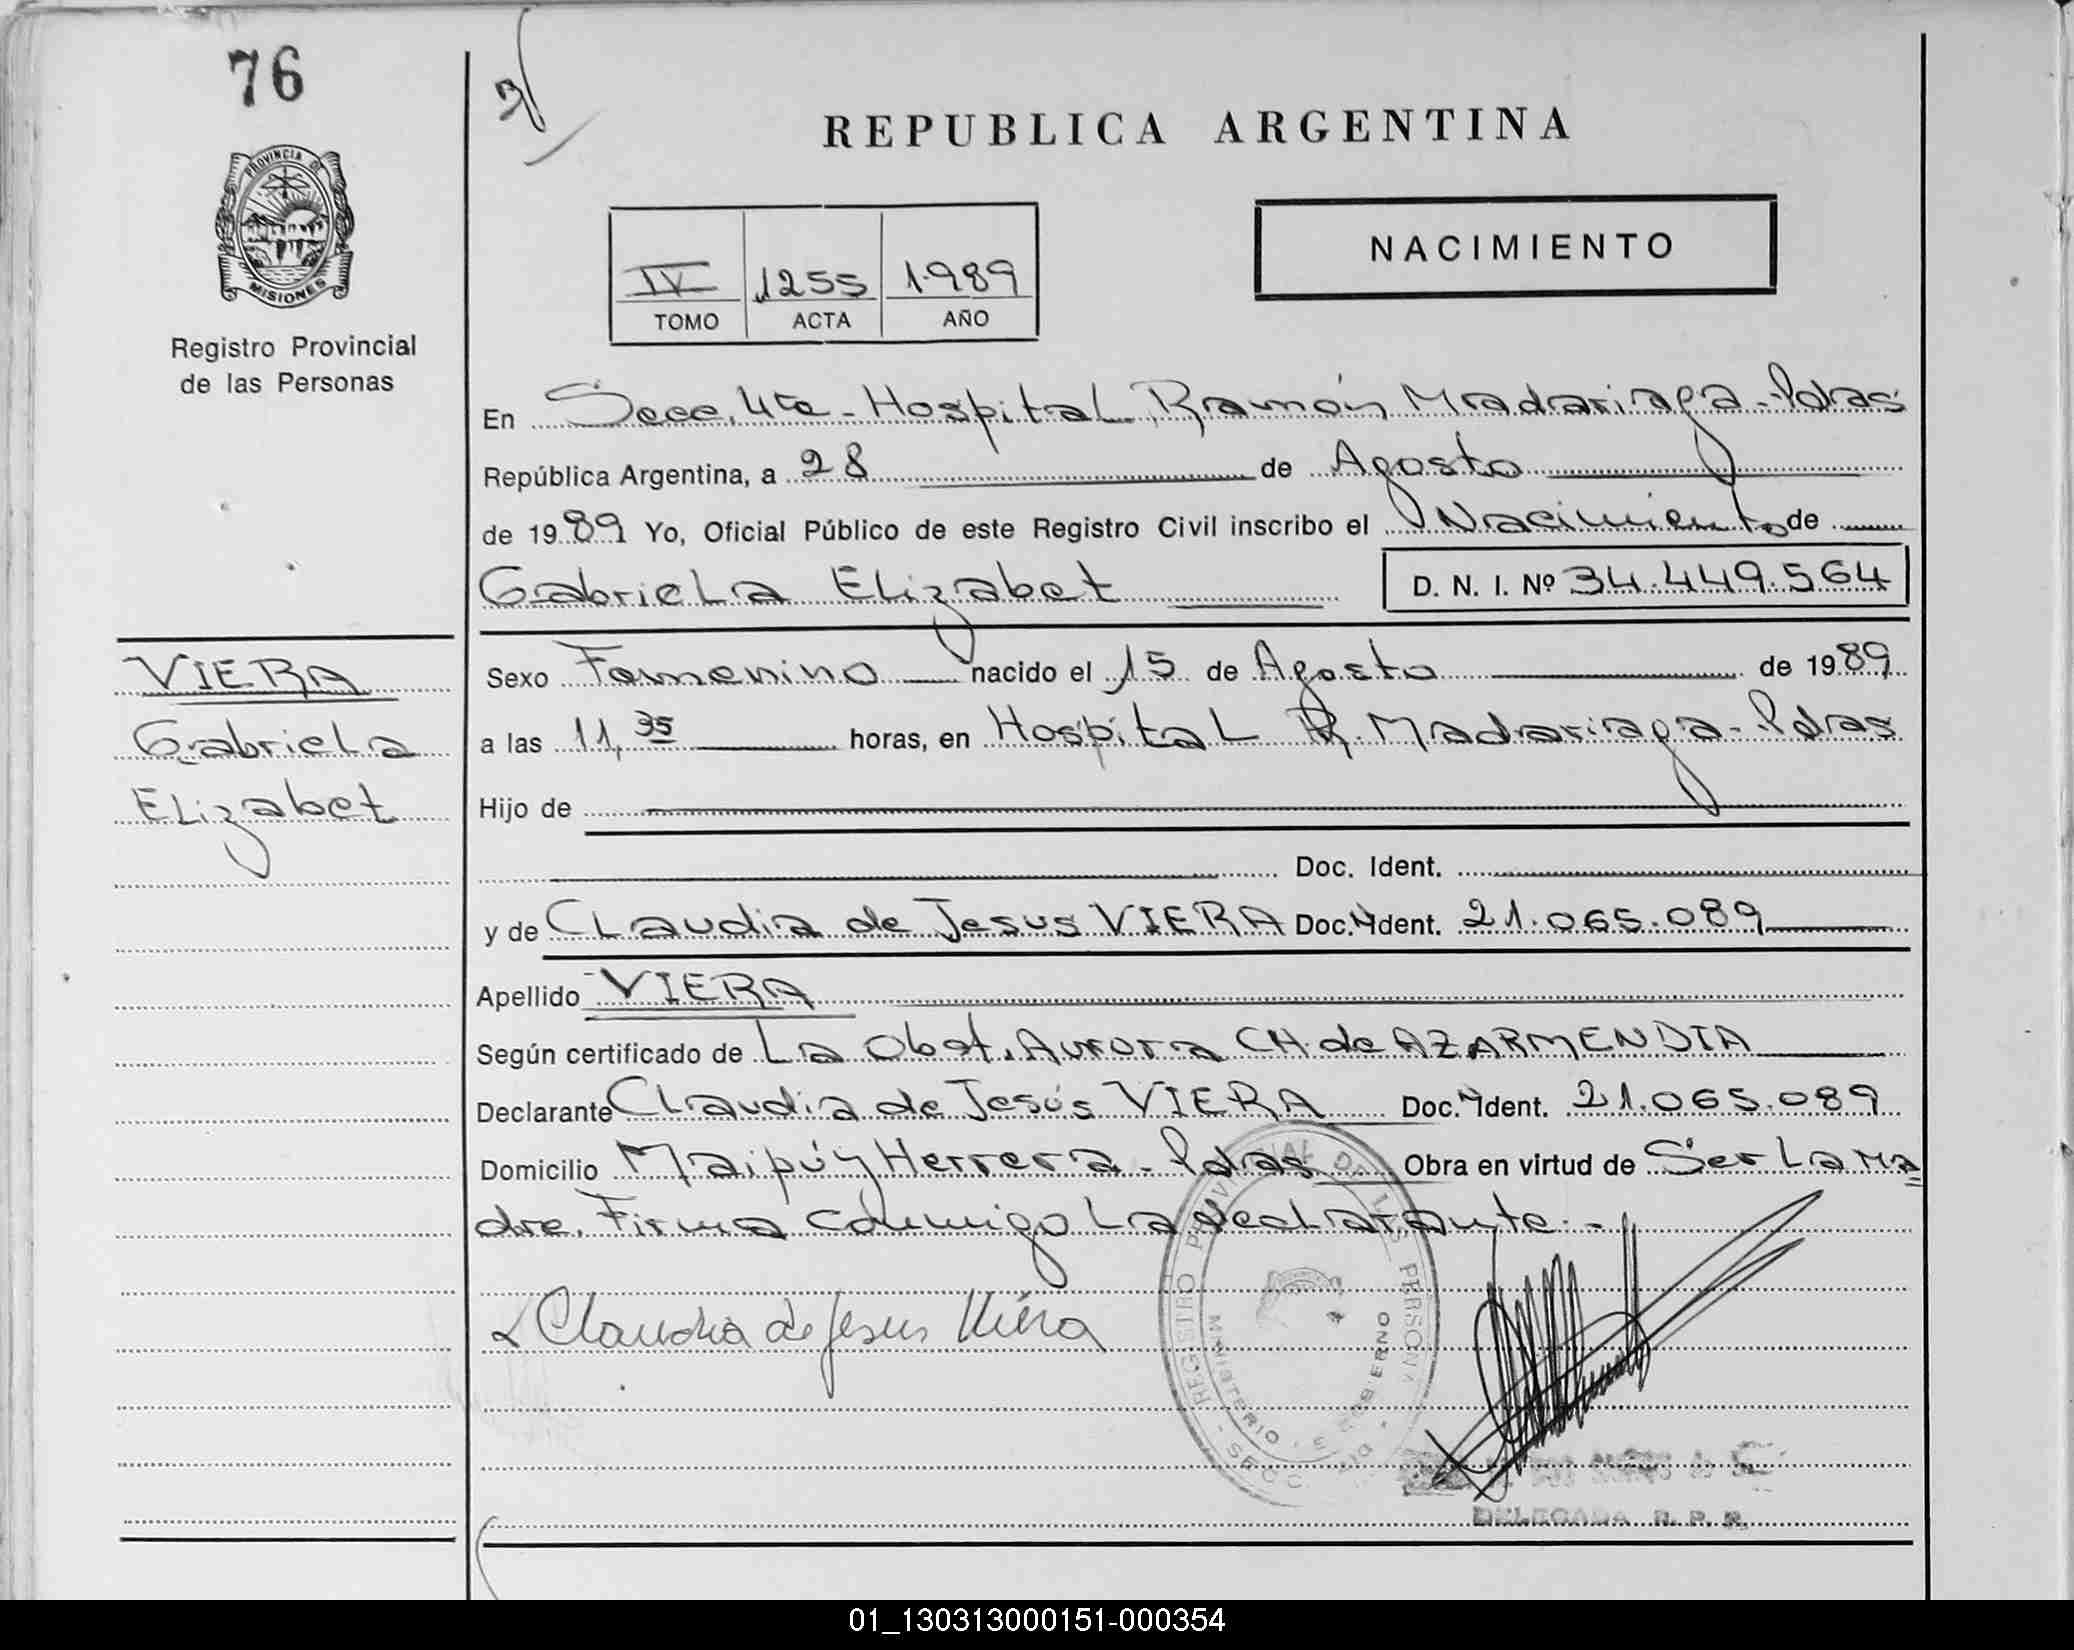 76
3/
PROVINCIA DE
MISIONES
Registro Provincial
de las Personas
REPUBLICA ARGENTINA
IV 1255 1.989
TOMO ACTA AÑO
NACIMIENTO
En Secc. 4ta - Hospital Ramón Madariaga - Pdas
República Argentina, a 28 de Agosto
de 1989 Yo, Oficial Público de este Registro Civil inscribo el Nacimiento de
Gabriela Elizabet D. N. I. Nº 34.449.564
VIERA
Gabriela
Elizabet
Sexo Femenino nacido el 15 de Agosto de 1989
a las 11,35 horas, en Hospital R. Madariaga - Pdas
Hijo de
Doc. Ident.
y de Claudia de Jesus VIERA Doc. Ident. 21.065.089
Apellido VIERA
Según certificado de La Obst. Aurora CH. de AZARMENDIA
Declarante Claudia de Jesús VIERA Doc. Ident. 21.065.089
Domicilio Maipú y Herrera - Pdas Obra en virtud de Ser La Ma
dre. Firma conmigo La declarante. -
Claudia de Jesus Viera
REGISTRO PROVINCIAL DE LAS PERSONAS
MINISTERIO DE GOBIERNO
SECC.
DELEGADA R. P. P.
01_130313000151-000354